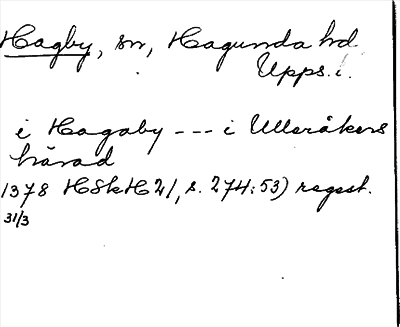 Hagby, sn, Hagunda hd.
Upps. l.
i Hagaby --- i Ulleråkers
härad
1378 HSkH 21, s. 274:53) regest.
31/3